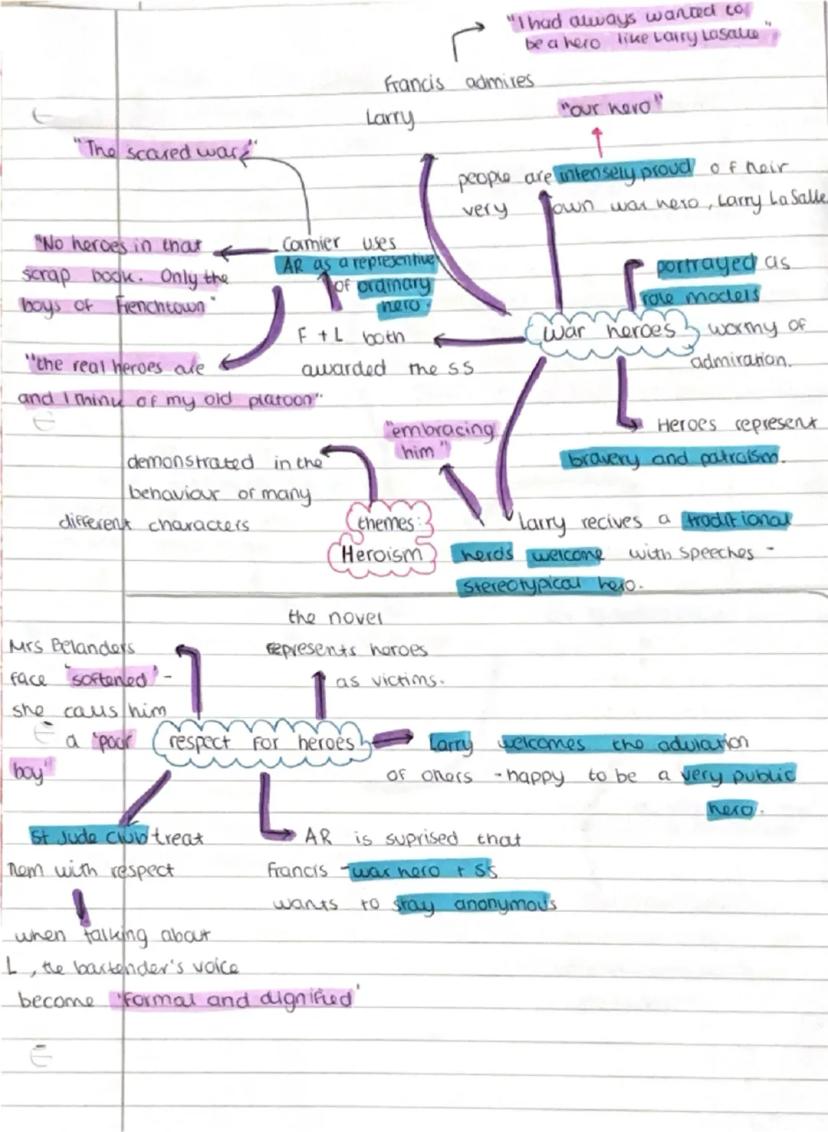 "I had always wanted to
be a hero like Larry LaSalle"
Francis admires
Larry
"our hero"
"The scared war"
people are intensely proud of their
very own war hero, Larry LaSalle
"No heroes in that
scrap book. Only the
boys of Frenchtown"
Cormier uses
AR as a representive
of ordinary
hero.
portrayed as
role models
war heroes
worthy of
admiration.
F + L both
awarded the SS
"the real heroes are
and I think of my old platoon"
Heroes represent
bravery and patroism.
"embracing
him"
demonstrated in the
behaviour of many
different characters
themes:
Heroism
Larry recives a traditional
heros welcome with speeches -
stereotypical hero.
the novel
represents heroes
as victims.
Mrs Belanders
face 'softened' -
she calls him
a 'poor
boy"
respect for heroes
Larry welcomes the adulation
of others - happy to be a very public
hero.
St Jude Club treat
them with respect
AR is suprised that
Francis - war hero + SS
wants to stay anonymous
when talking about
L, the bartender's voice
become 'formal and dignified'